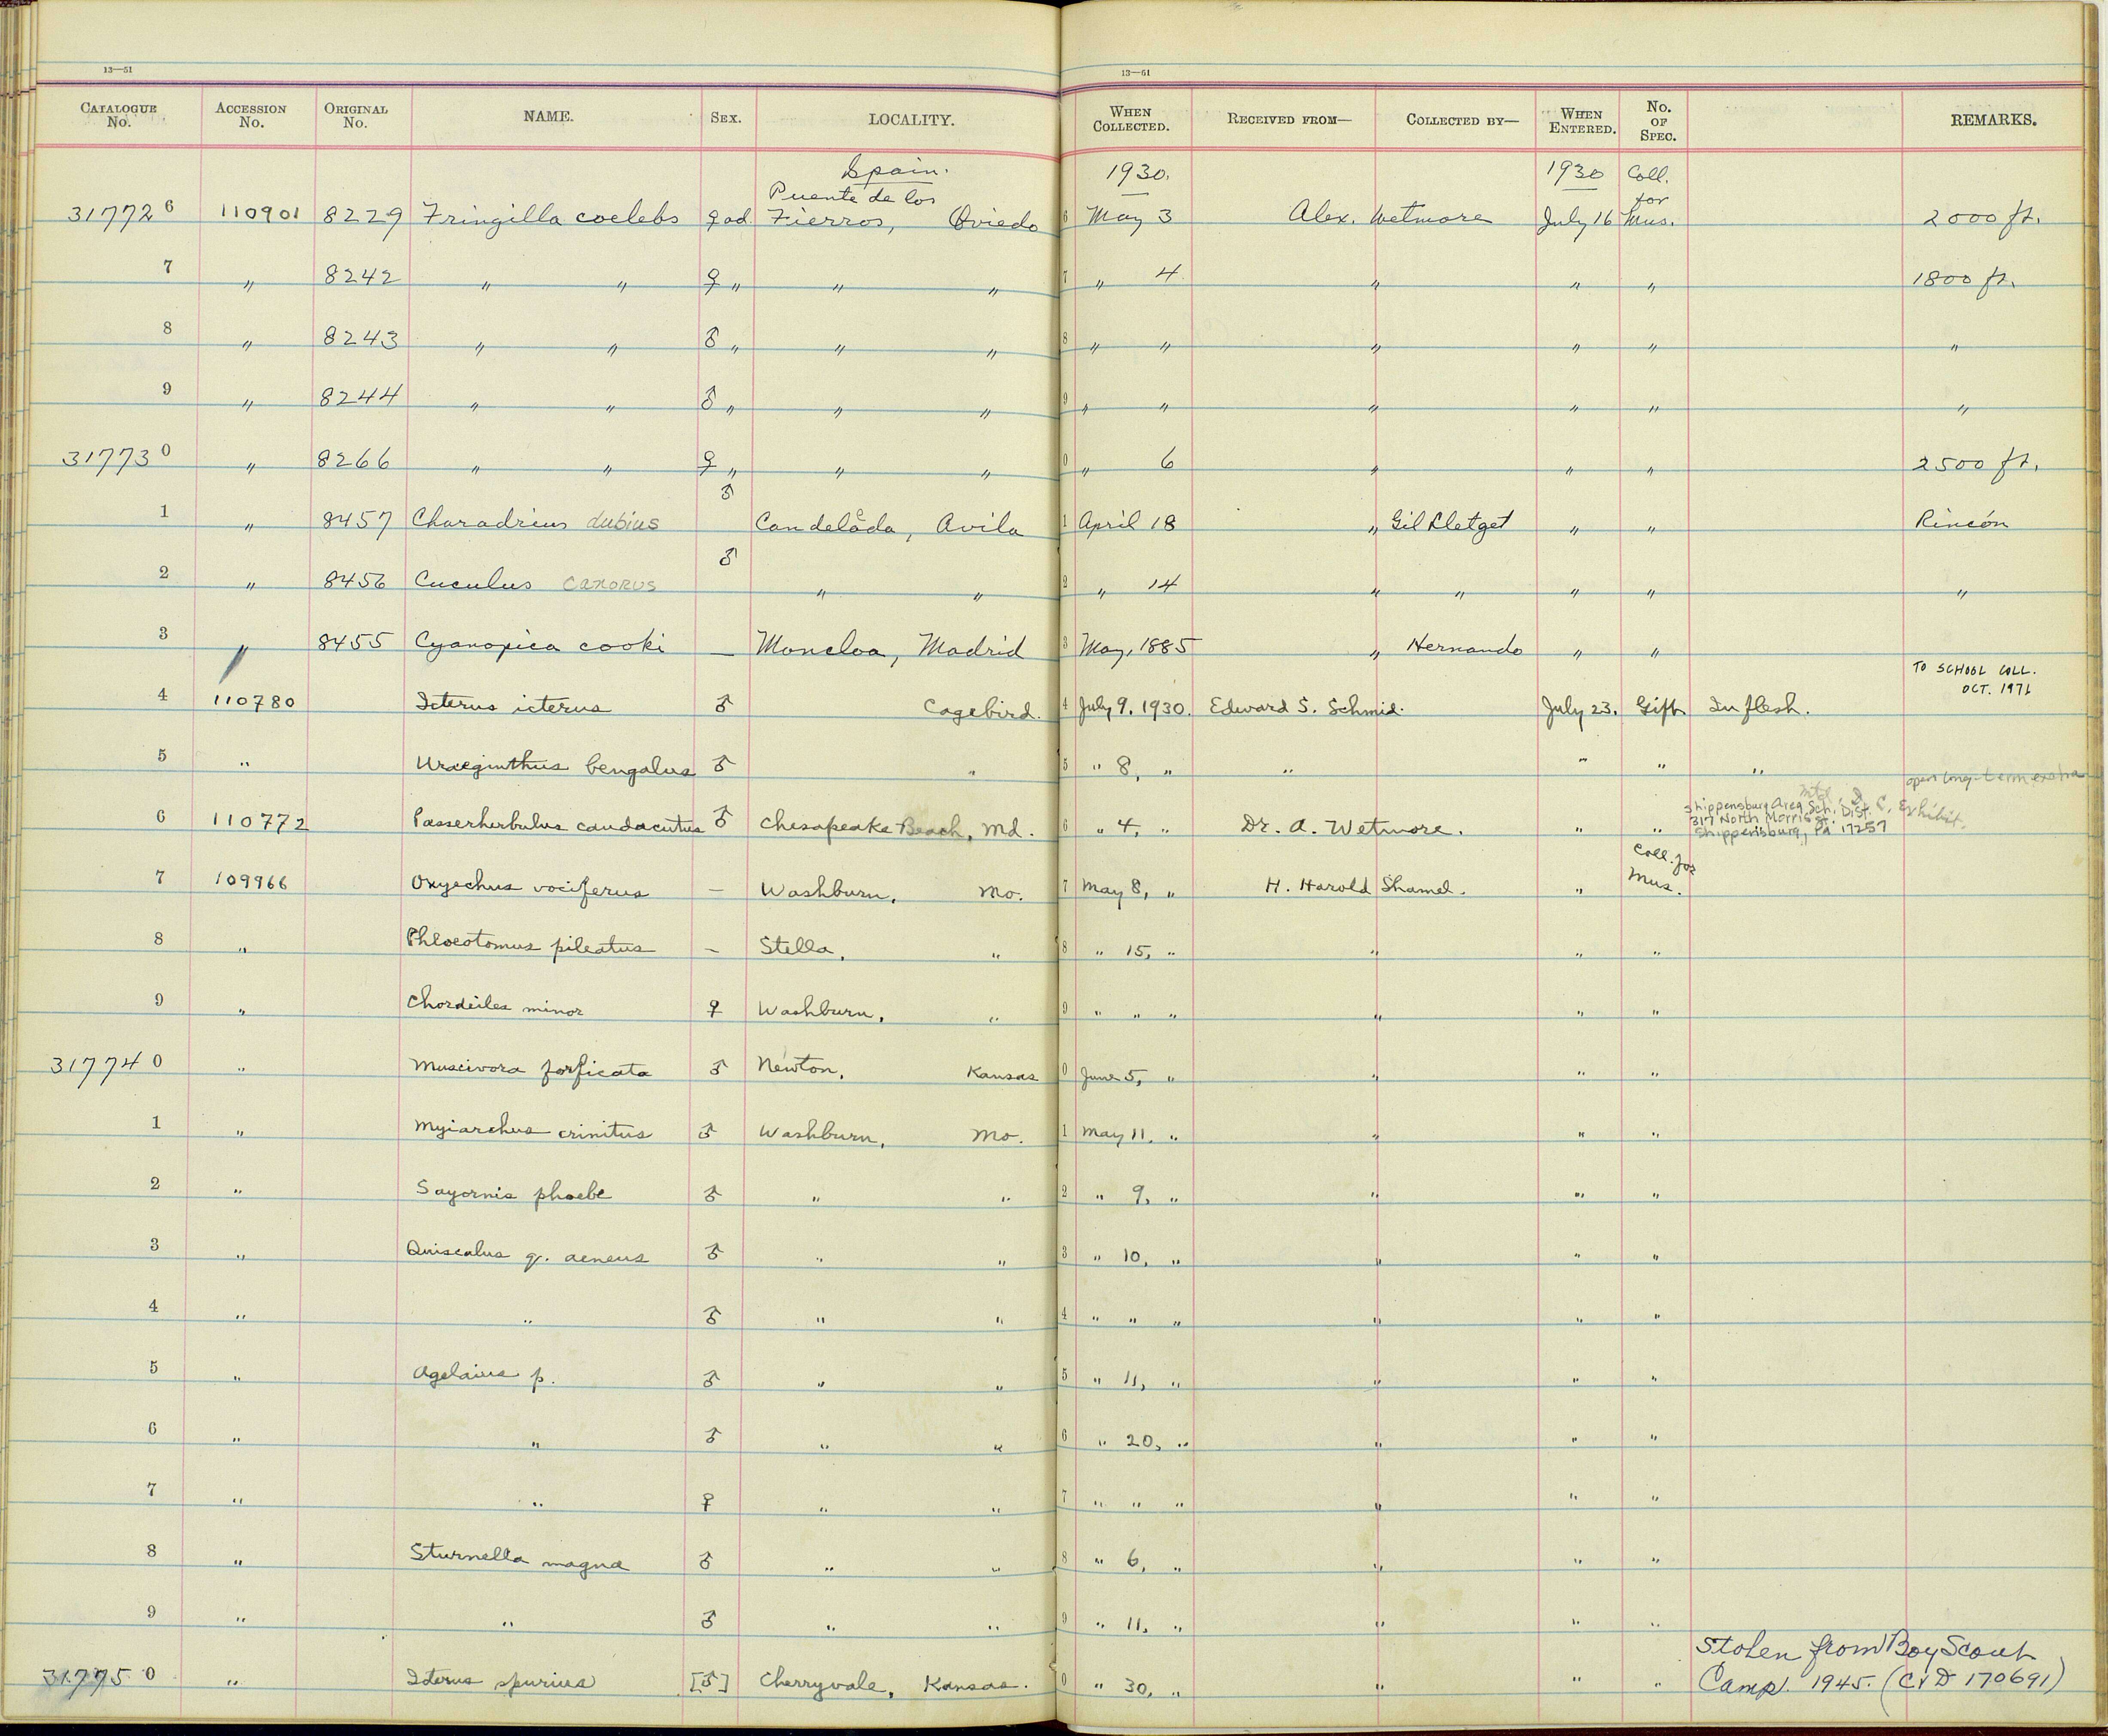 13—51
13—51
CATALOGUE No. ACCESSION No. ORIGINAL No. NAME. SEX. LOCALITY. WHEN COLLECTED. RECEIVED FROM— COLLECTED BY— WHEN ENTERED. No. OF SPEC. REMARKS.
Spain. 1930. 1930 Coll.
Puente de los for
317726 110901 8229 Fringilla coelebs ♀ad. Fierros, Oviedo 6 May 3 Alex. Wetmore July 16 Mus. 2000 ft.
7 " 8242 " " ♀ " " " 7 " 4 " " " 1800 ft.
8 " 8243 " " ♂ " " " 8 " " " " " "
9 " 8244 " " ♂ " " " 9 " " " " " "
317730 " 8266 " " ♀ " " " 0 " 6 " " " 2500 ft.
1 " 8457 Charadrius dubius ♂ Candeleda, Avila 1 April 18 " Gil Lletget " " Rincón
2 " 8456 Cuculus canorus ♂ " " 2 " 14 " " " " "
3 " 8455 Cyanopica cooki — Moncloa, Madrid 3 May, 1885 " Hernando " "
TO SCHOOL COLL.
OCT. 1971
4 110780 Icterus icterus ♂ Cagebird. 4 July 9, 1930. Edward S. Schmid. July 23. Gift In flesh.
5 " Uraeginthus bengalus ♂ " 5 " 8, " " " " "
open long-term extra
Exhibit.
Shippensburg Area Sch. Dist.
317 North Morris St.
Shippensburg, Pa 17257
6 110772 Passerherbulus caudacutus ♂ Chesapeake Beach, Md. 6 " 4, " Dr. A. Wetmore. " "
Coll. for
7 109966 Oxyechus vociferus — Washburn, Mo. 7 May 8, " H. Harold Shamel. " Mus.
8 " Phloeotomus pileatus — Stella, " 8 " 15, " " " "
9 " Chordeiles minor ♀ Washburn, " 9 " " " " " "
317740 " Muscivora forficata ♂ Newton, Kansas 0 June 5, " " " "
1 " Myiarchus crinitus ♂ Washburn, Mo. 1 May 11, " " " "
2 " Sayornis phoebe ♂ " " 2 " 9, " " " "
3 " Quiscalus q. aeneus ♂ " " 3 " 10, " " " "
4 " " ♂ " " 4 " " " " " "
5 " Agelaius p. ♂ " " 5 " 11, " " " "
6 " " ♂ " " 6 " 20, " " " "
7 " " ♀ " " 7 " " " " " "
8 " Sturnella magna ♂ " " 8 " 6, " " " "
9 " " ♂ " " 9 " 11, " " " "
Stolen from Boy Scout
317750 " Icterus spurius [♂] Cherryvale, Kansas. 0 " 30, " " " " Camp. 1945. (CrD 170691)